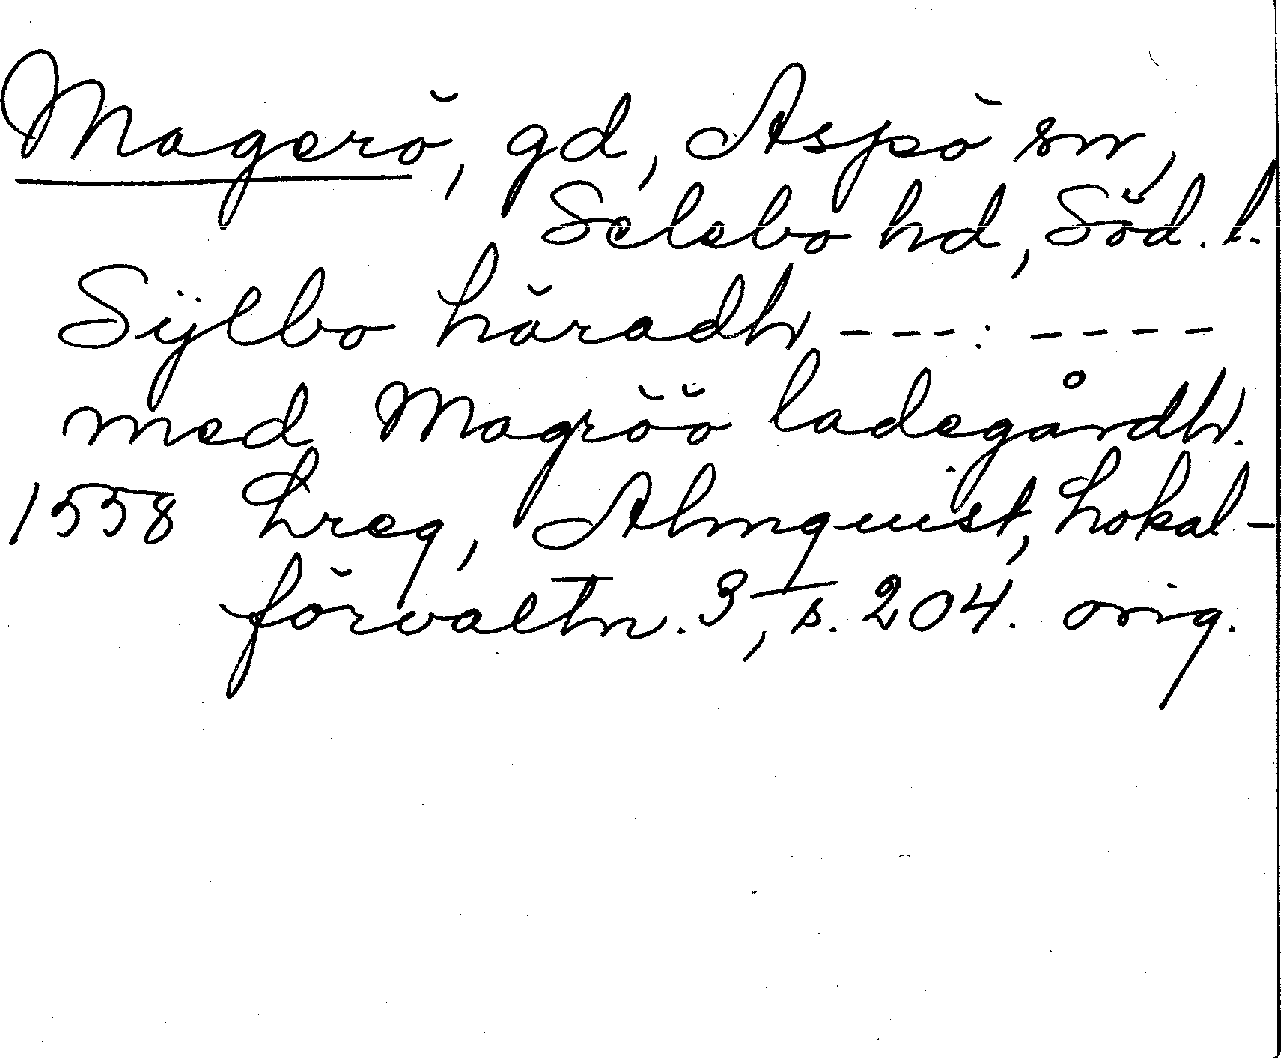 Magerö, gd, Aspö sn,
Selebo hd, Söd. l.
Sÿlbo häradh ---: ----
med Magröö ladegårdh.
1558 Lreg, Almquist, Lokal-
förvaltn. 3, s. 204. orig.